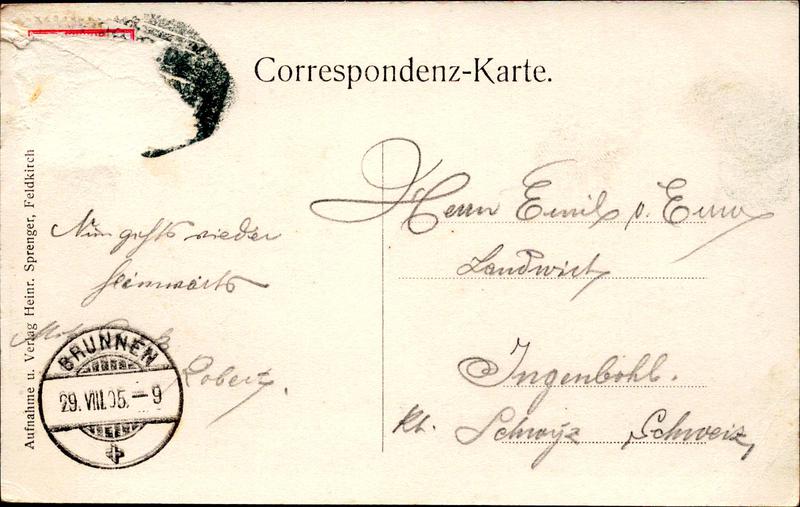 Correspondenz-Karte.
Aufnahme u. Verlag Heinr. Sprenger, Feldkirch
Nun gehts wieder
heimwärts
Robert.
BRUNNEN
29. VIII. 05. – 9
Herrn Emil v. Euw
Landwirt
Ingenbohl.
Kt. Schwyz Schweiz,